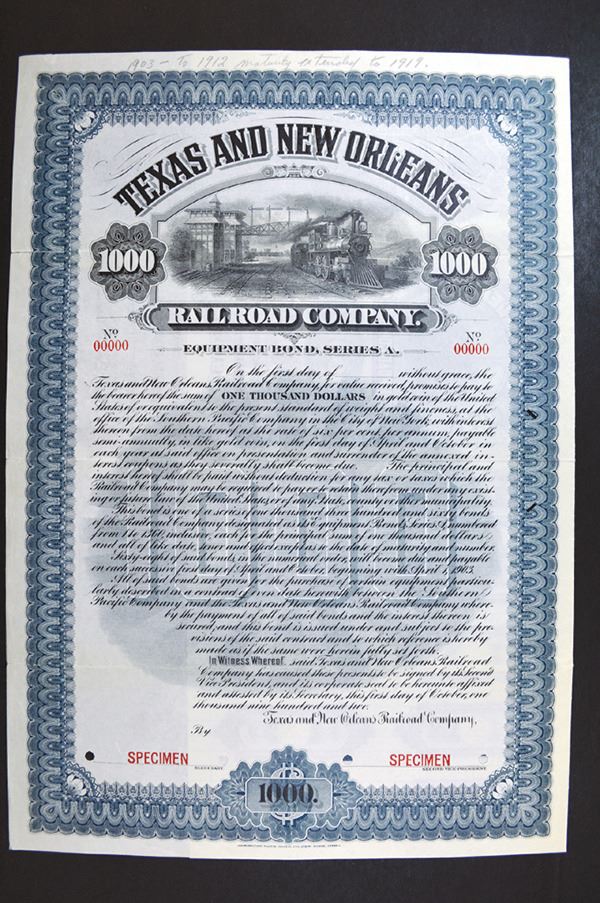 1903 - To 1912 maturity extended to 1919.
TEXAS AND NEW ORLEANS
1000 1000
RAILROAD COMPANY.
No 00000 No 00000
EQUIPMENT BOND, SERIES A.
On the first day of without grace, the
Texas and New Orleans Railroad Company, for value received, promises to pay to
the bearer hereof the sum of ONE THOUSAND DOLLARS in gold coin of the United
States of or equivalent to the present standard of weight and fineness, at the
office of the Southern Pacific Company in the City of New York, with interest
thereon from the date hereof at the rate of six per cent per annum, payable
semi-annually, in like gold coin, on the first day of April and October in
each year at said office on presentation and surrender of the annexed in-
terest coupons as they severally shall become due. The principal and
interest hereof shall be paid without deduction for any tax or taxes which the
Railroad Company may be required to pay or retain therefrom under any exist-
ing or future law of the United States, or of any State, county or other municipality.
This bond is one of a series of one thousand three hundred and sixty bonds
of the Railroad Company, designated as its Equipment Bonds, Series A, numbered
from 1 to 1360, inclusive, each for the principal sum of one thousand dollars
and all of like date, tenor and effect except as to date of maturity and number.
Sixty-eight of said bonds, in their numerical order, will become due and payable
on each successive first day of April and October, beginning with April 1, 1903.
All of said bonds are given for the purchase of certain equipment particu-
larly described in a contract of even date herewith between the Southern
Pacific Company and the Texas and New Orleans Railroad Company, where-
by the payment of all of said bonds and the interest thereon is
secured, and this bond is issued under and subject to the pro-
visions of the said contract and to which reference is hereby
made as if the same were herein fully set forth.
In Witness Whereof, said Texas and New Orleans Railroad
Company has caused these presents to be signed by its Second
Vice President, and its corporate seal to be hereunto affixed
and attested by its Secretary, this first day of October, one
thousand nine hundred and two.
Texas and New Orleans Railroad Company,
By
SPECIMEN SPECIMEN
SECRETARY. SECOND VICE-PRESIDENT.
1000.